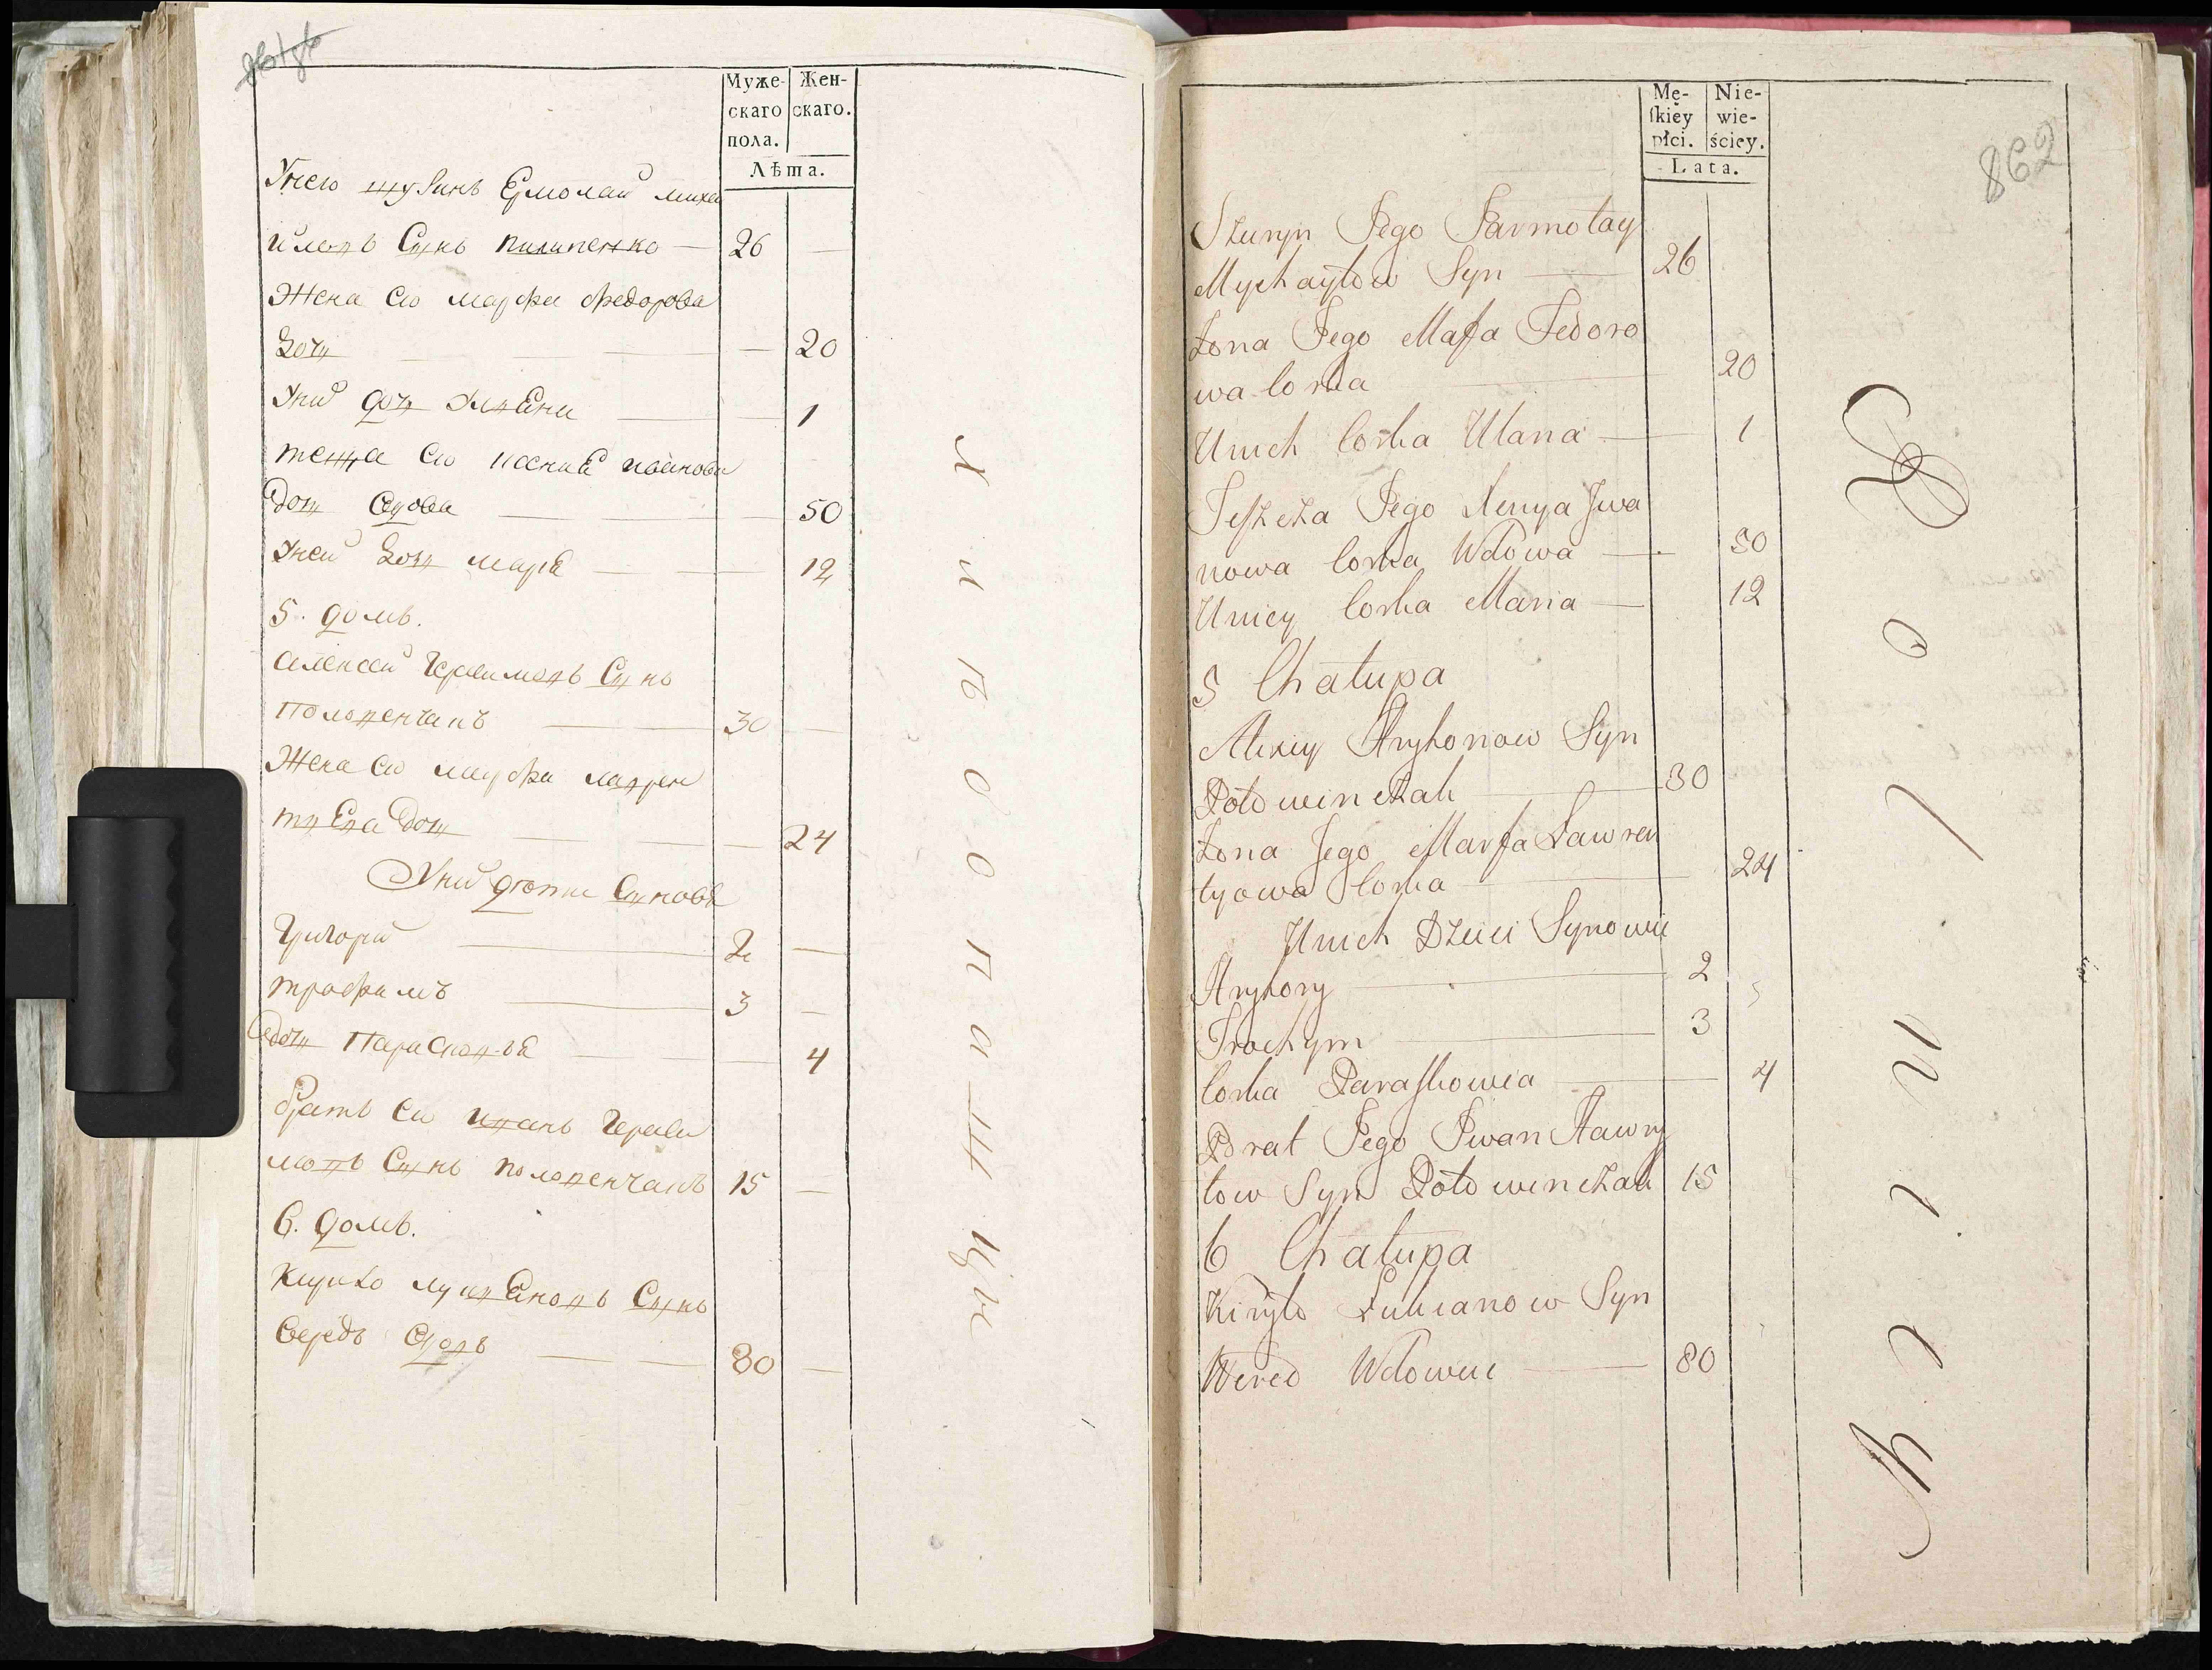 Муже-
скаго
пола.
Жен-
скаго.
Лѣта.
Унего шуринъ Ермолай миха
иловъ Сынъ пилипенко — 26 —
Жена его марфа федорова
дочь — 20
Уних дочь Улѣяна — 1
теща его
дочь вдова — 50
Уней дочь марѣя — 12
5. домъ.
алексей Сынъ
Половенчакъ — 30 —
Жена его марфа лаврен
тѣева дочь — 24
Уних дѣти Сыновѣя
Григорий — 2 —
трофимъ — 3 —
дочь Парасковѣя — 4
братъ его иванъ
Сынъ половенчакъ 15 —
6. домъ.
Кирило лукѣяновъ Сынъ
Вередъ вдовъ — 80 —
862
Mę-
ſkiey
płci.
Nie-
wie-
ściey.
Lata.
Szuryn Jego Jarmołay
Mychayłow Syn — 26
Żona Jego Mafa Fedoro
wa Corka — 20
Unich Corka Ulana — 1
Teſzcza Jego Xenya Jwa
nowa Corka Wdowa — 50
Uniey Corka Maria — 12
5 Chałupa
Alexiy Hryhorow Syn
Połowinczak — 30
Żona Jego Marfa Lawren
tyowa Corka — 24
Unich Dzieci Synowie
Hryhory — 2
Trochym — 3
Corka Paraſkowia — 4
Brat Jego Jwan Hawry
łow Syn Połowinczak 15
6 Chałupa
Kiryło Lukianow Syn
Wered Wdowiec — 80